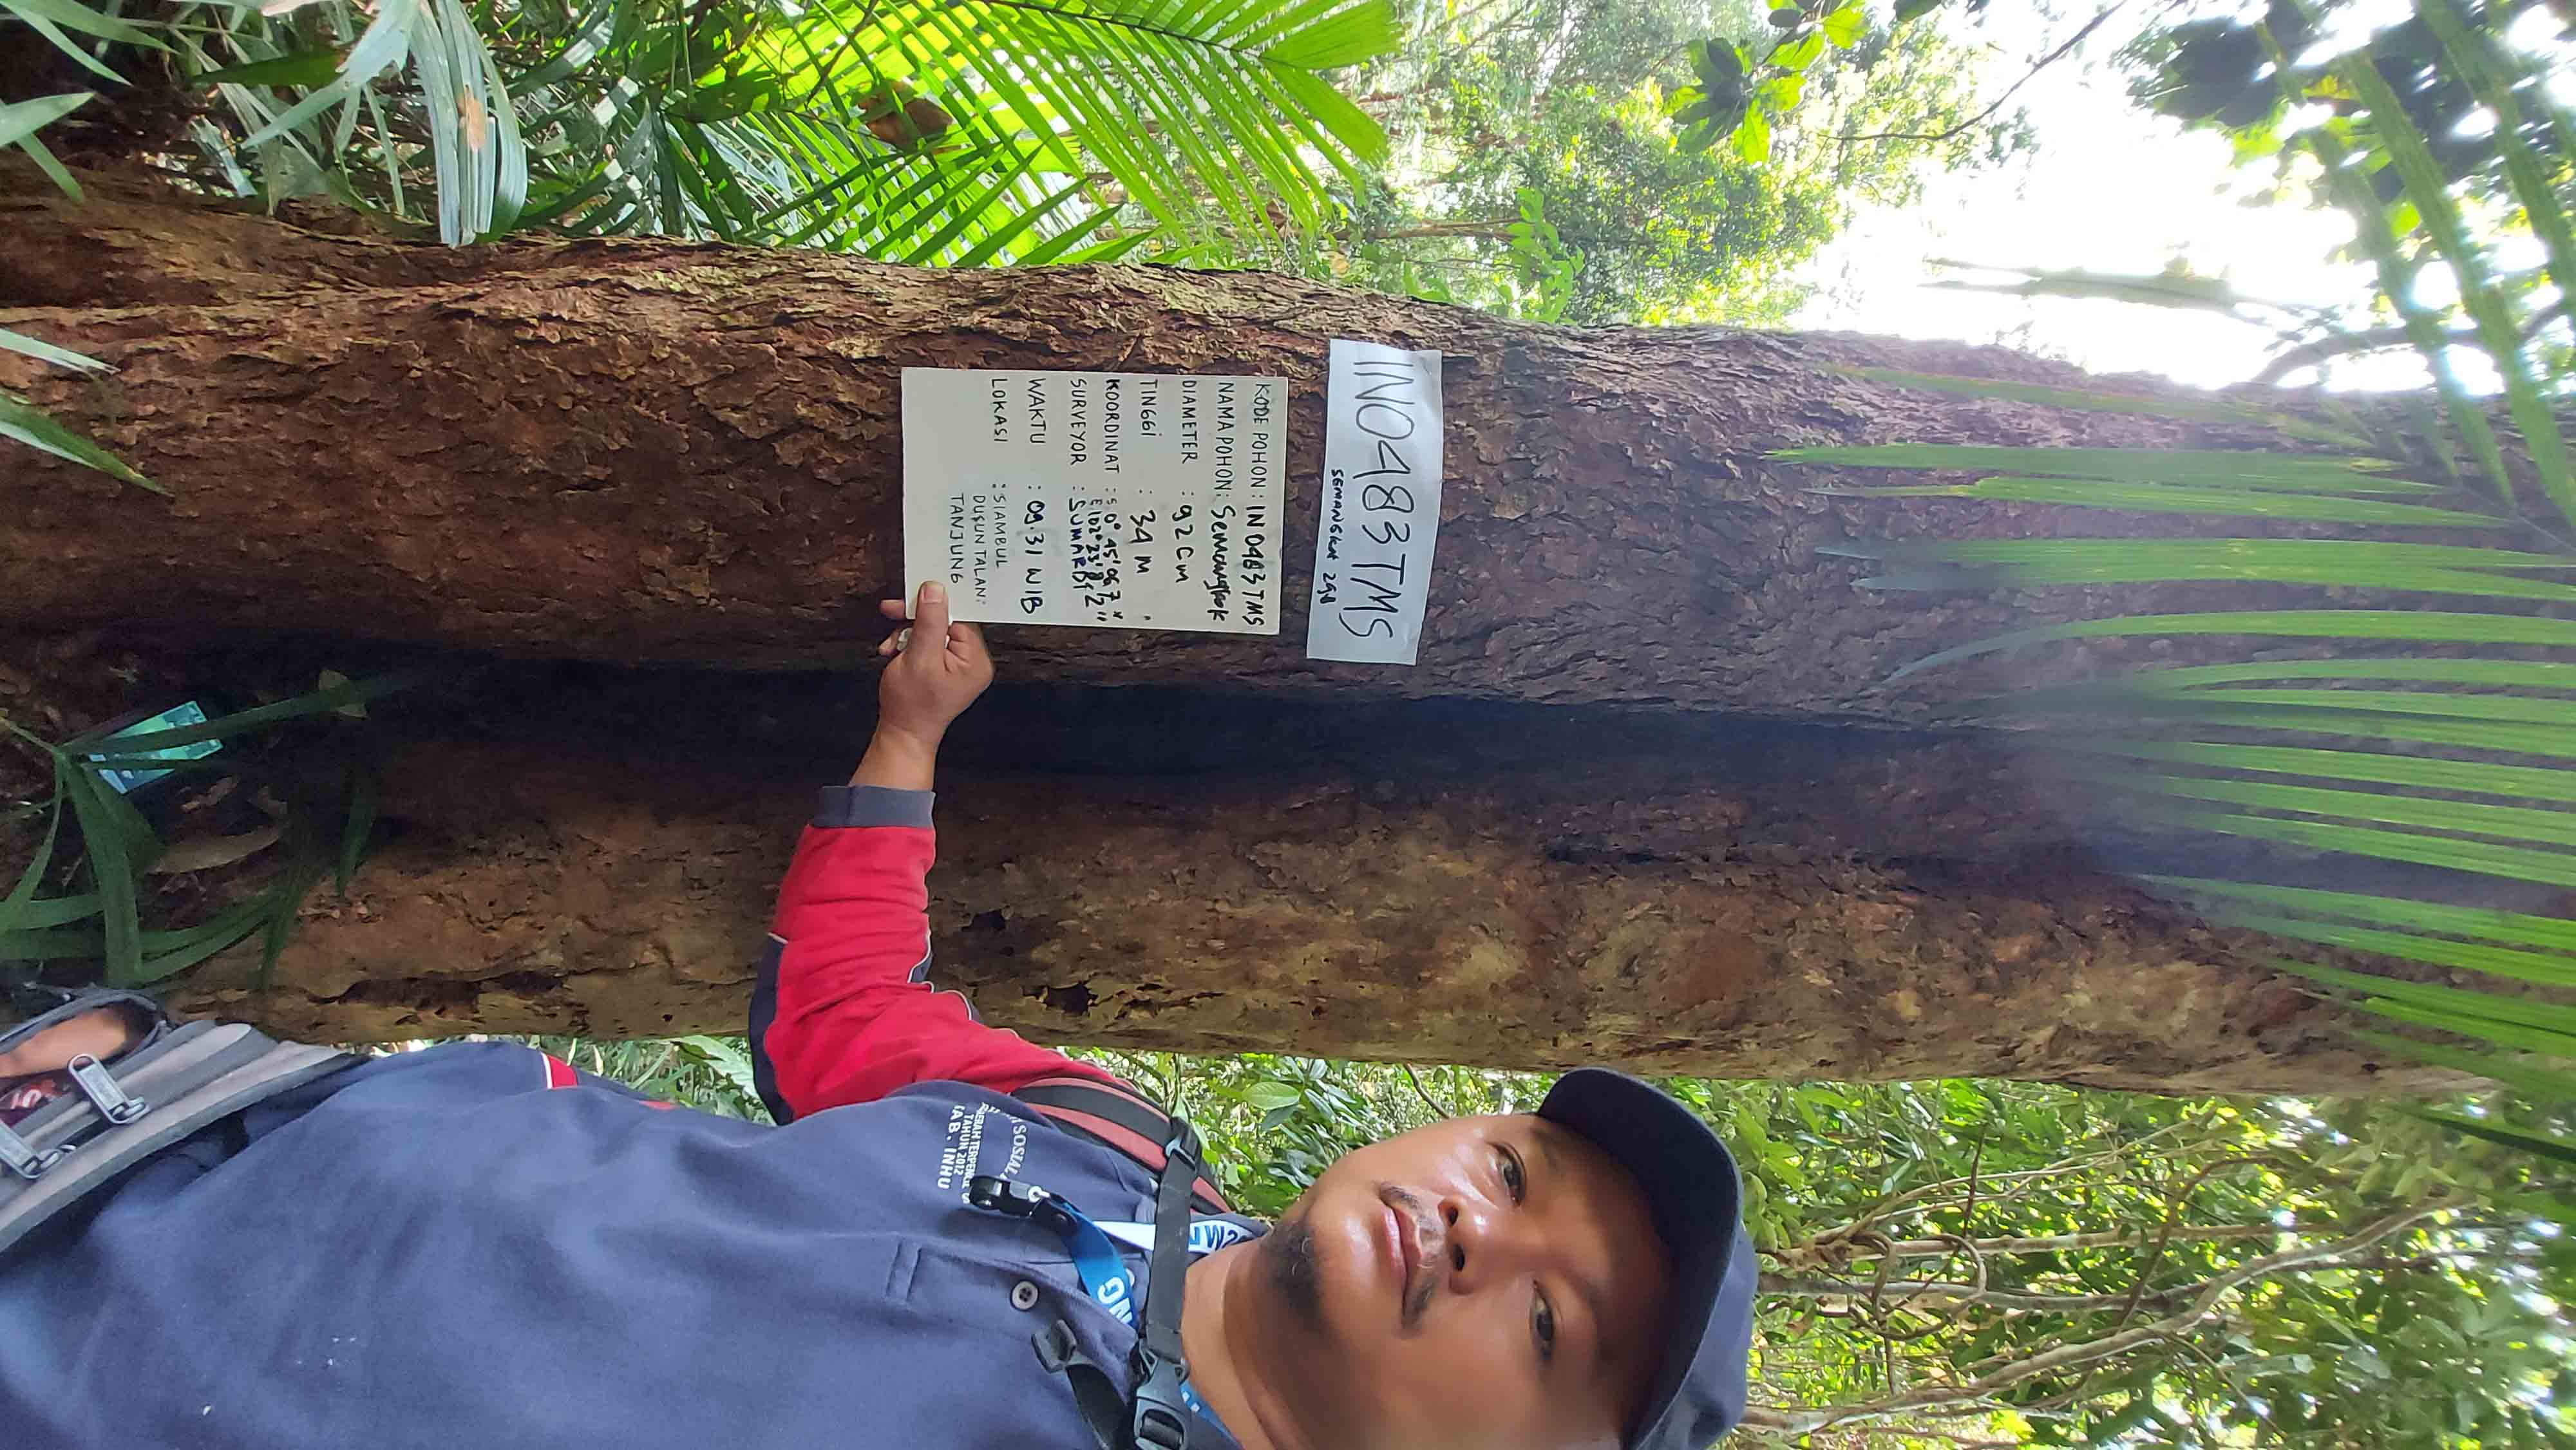 IN0483TMS
SEMANGKOK
KODE POHON : IN 0483 TMS
NAMA POHON : Semangkok
DIAMETER : 92 cm
TINGGI : 34 M
KOORDINAT : S 0° 45' 06 7"
E 102° 23' 8 2"
SURVEYOR : SUMARDI
WAKTU : 09.31 WIB
LOKASI : SIAMBUL
DUSUN TALAN
TANJUNG
SOSIAL
TAHUN 2012
KAB. INHU